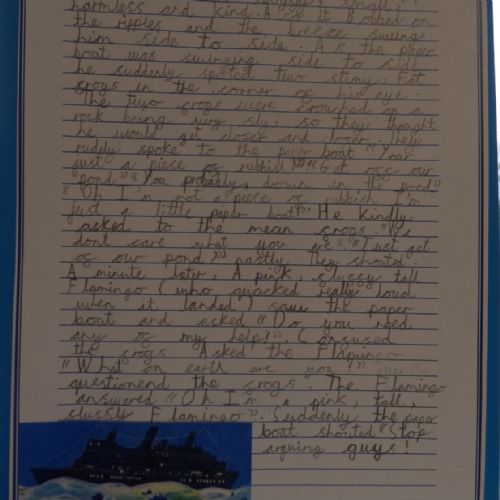 harmless and kind. As it bobbed on
the ripples and the breeze swung
him side to side. As the paper
boat was swinging side to side
he suddenly spoted two slimy, Fat
frogs in the corner of his eye.
The two frogs were crouched on a
rock being very sly, so they thought
he would get closer and closer. They
rudely spoke to the paper boat "Your
just a piece of rubbish!" "Get off our
pond" "You probably drown in the pond"
"Oh I'm not a piese of rubbish I'm
just a little paper boat!" He kindly
asked to the mean frogs. "We
dont care what you are" "Just get
of our pond" nastly They shouted.
A minute later, A pink, fluffy tall
Flamingo (who quacked really loud
when it landed) saw the paper
boat and asked "Do you need
any of my help?". Confused
the frogs Asked the Flamingo
"What on earth are you?"
questionend the frogs. The Flamingo
answered "Oh I'm a pink, tall,
fluffy Flamingo". Suddenly the paper
boat shouted "Stop
arguing guys!